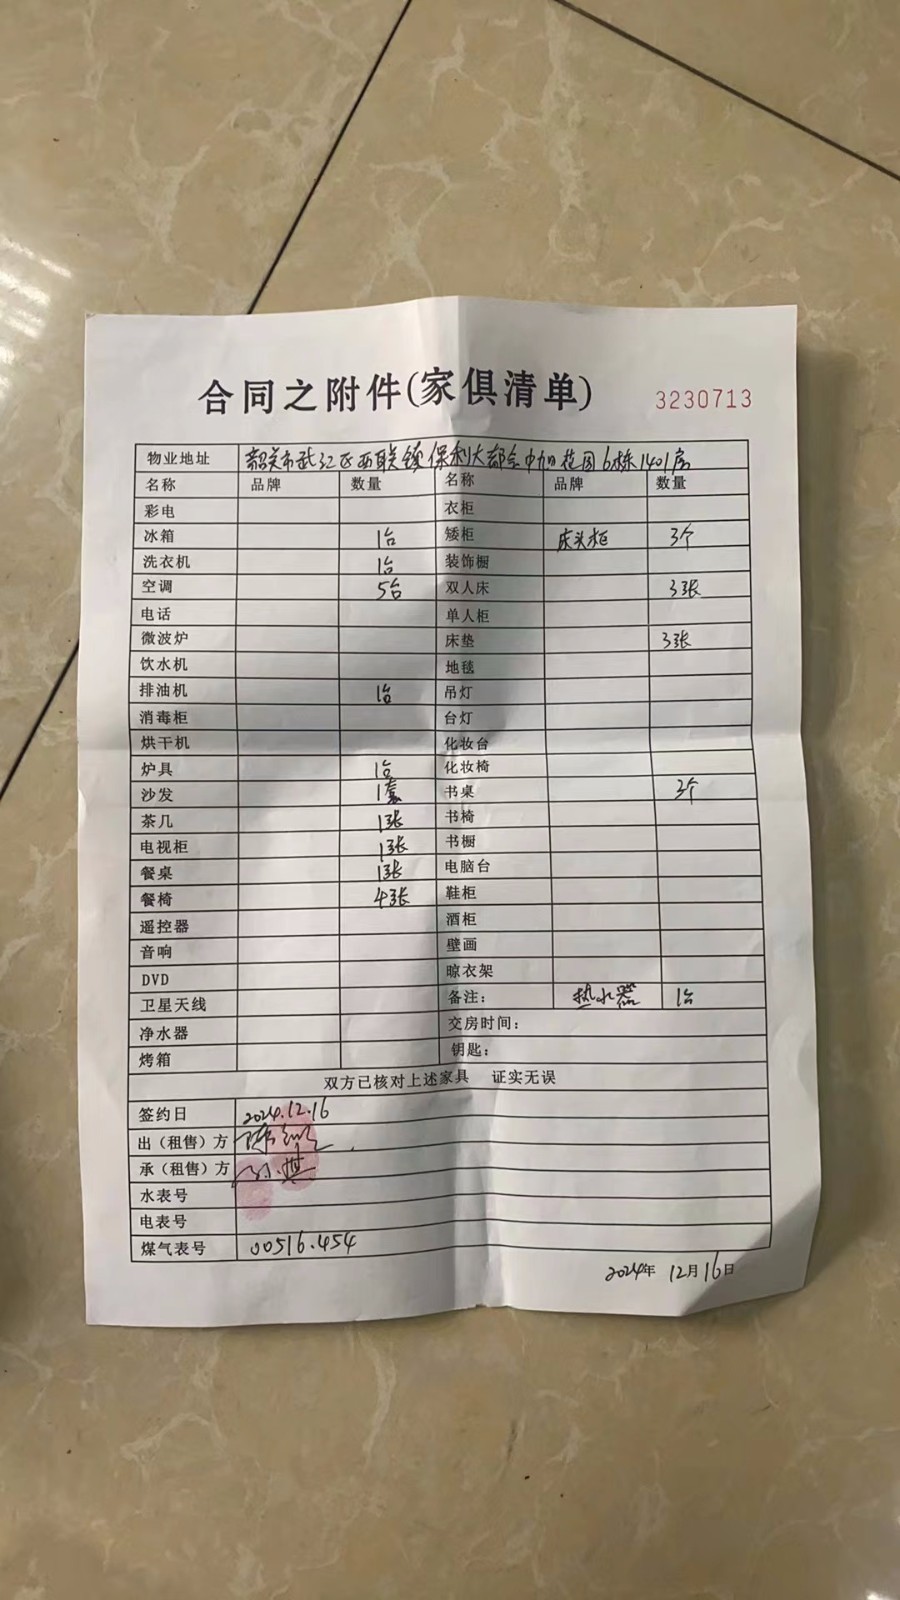 合同之附件(家俱清单)
3230713
物业地址 韶关市武江区西联镇保利大都会中加花园6栋1401房
名称 品牌 数量 名称 品牌 数量
彩电 衣柜
冰箱 1台 矮柜 床头柜 3个
洗衣机 1台 装饰橱
空调 5台 双人床 3张
电话 单人柜
微波炉 床垫 3张
饮水机 地毯
排油机 1台 吊灯
消毒柜 台灯
烘干机 化妆台
炉具 1台 化妆椅
沙发 1套 书桌 3个
茶几 1张 书椅
电视柜 1张 书橱
餐桌 1张 电脑台
餐椅 4张 鞋柜
遥控器 酒柜
音响 壁画
DVD 晾衣架
卫星天线 备注： 热水器 1台
净水器 交房时间：
烤箱 钥匙：
双方已核对上述家具 证实无误
签约日 2024.12.16
出（租售）方
承（租售）方
水表号
电表号
煤气表号 00516.454
2024年 12月16日